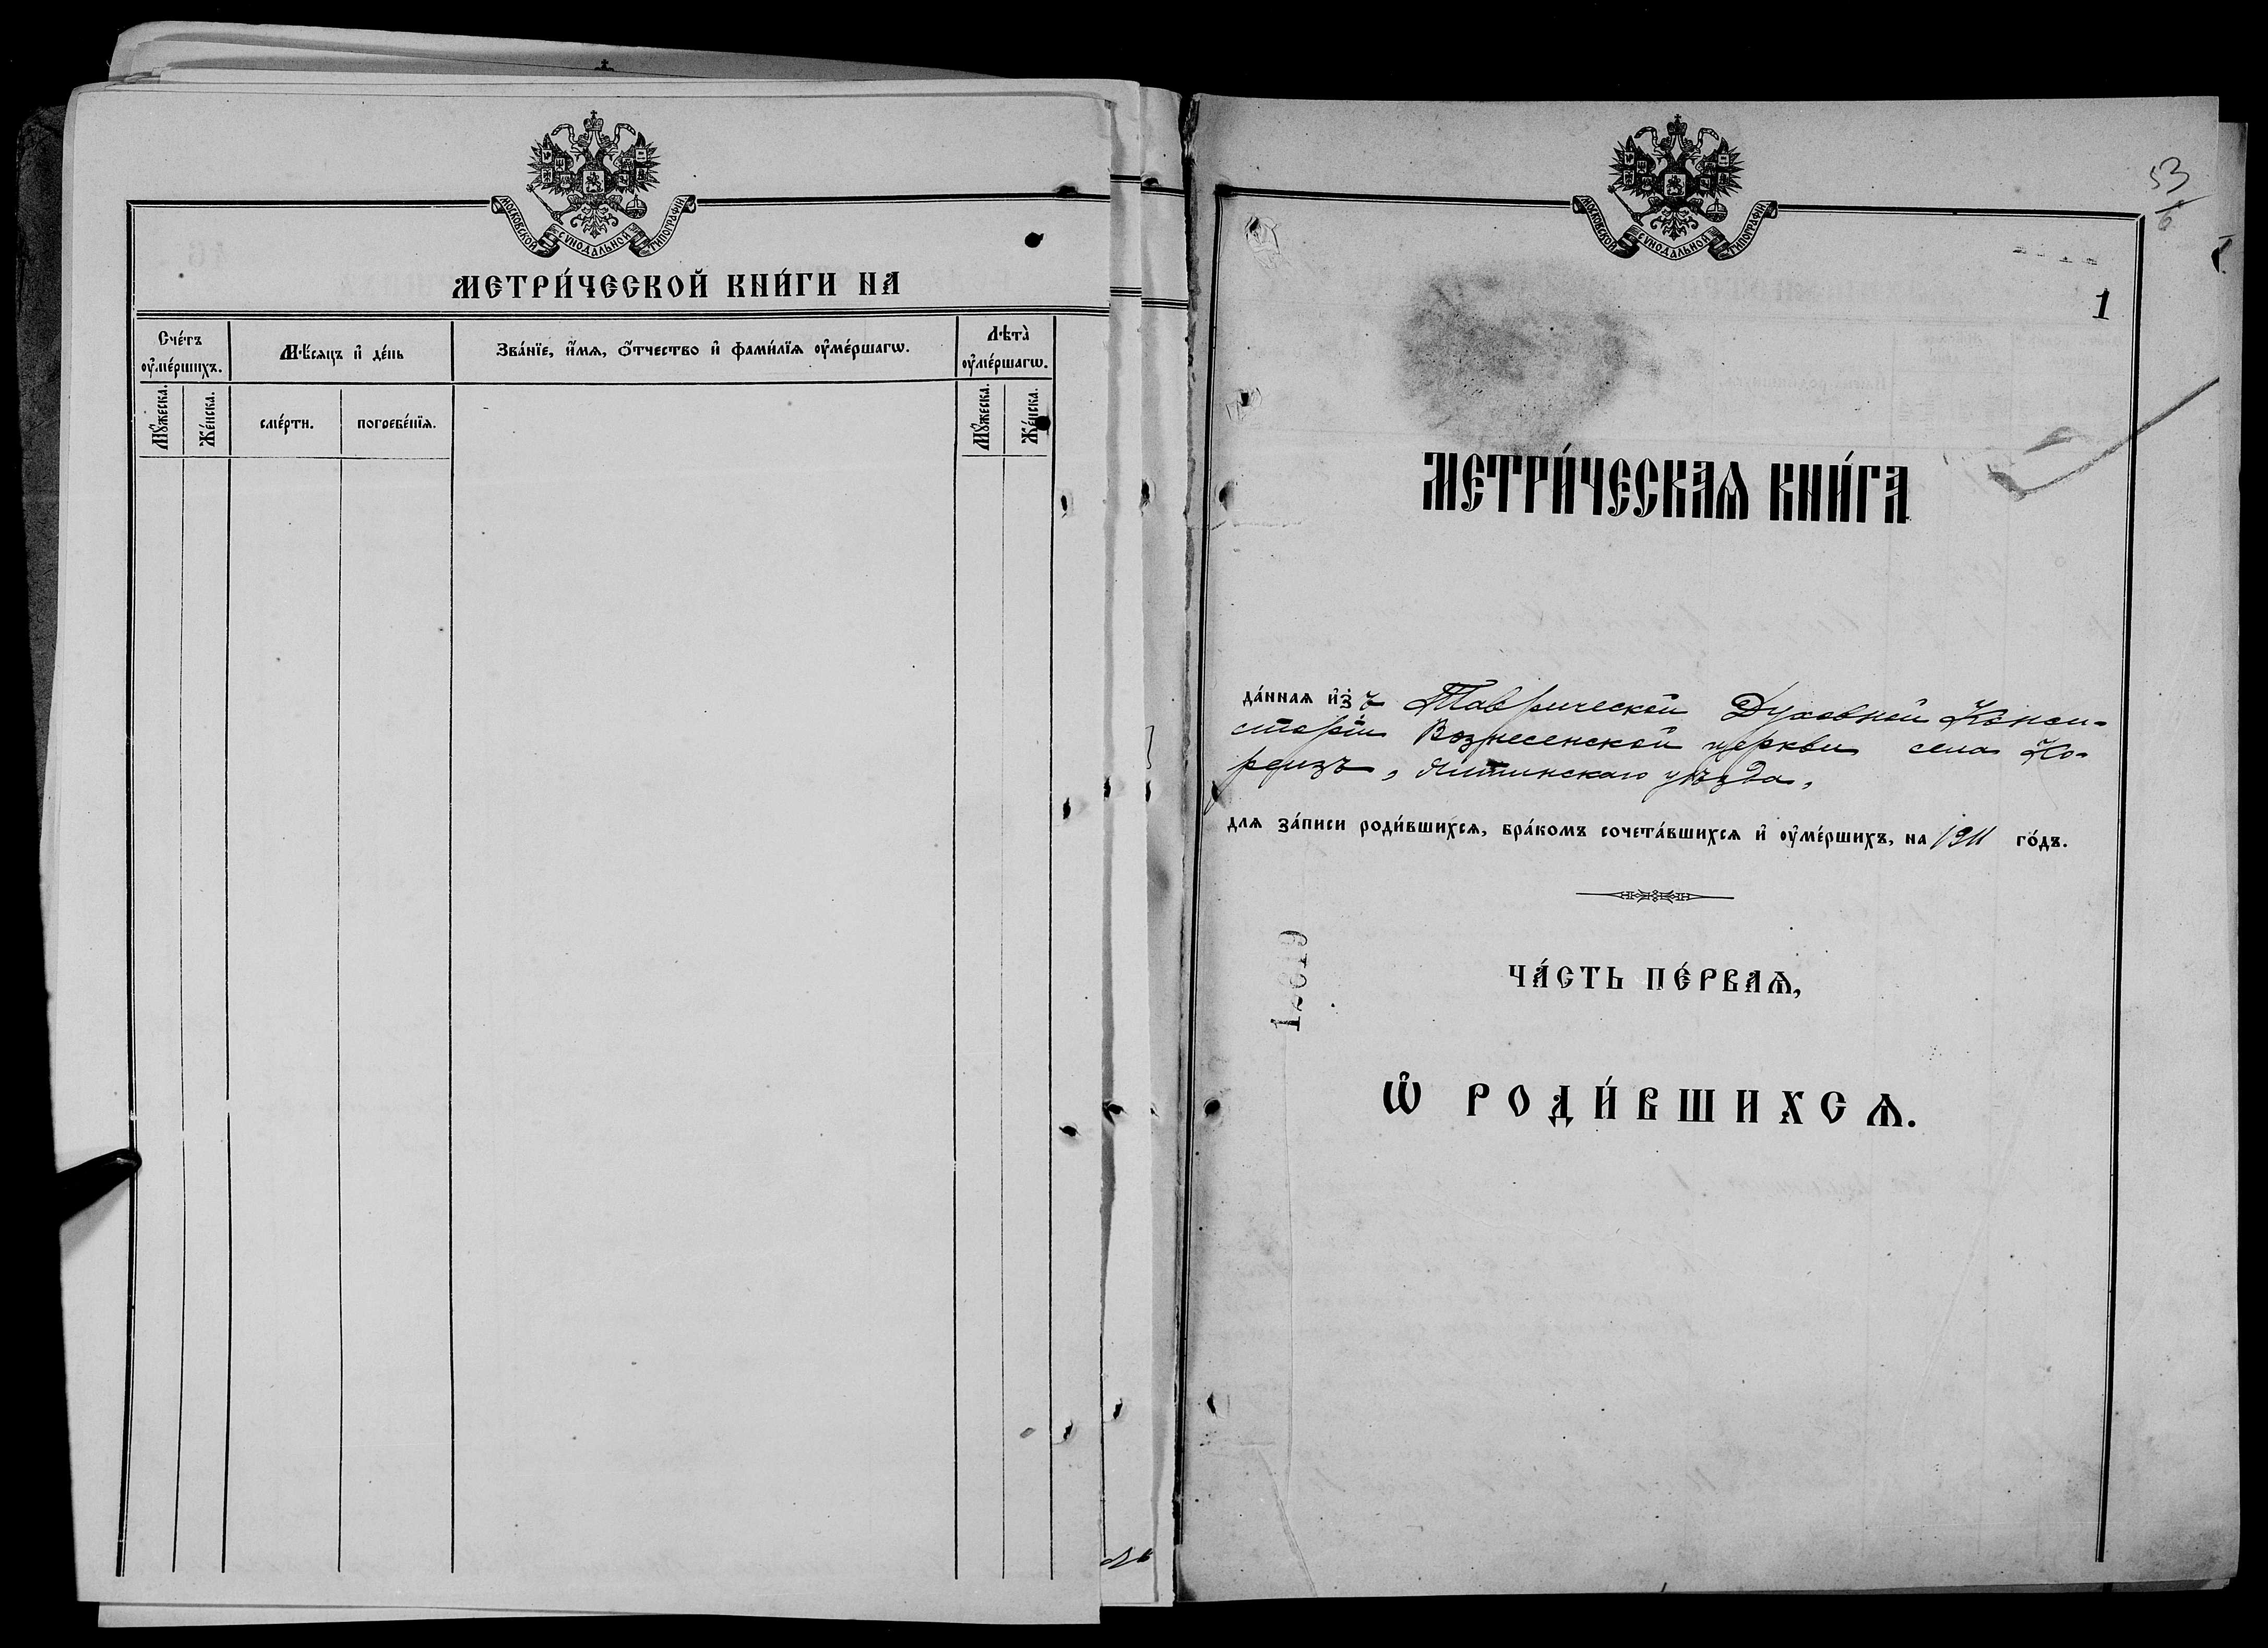 МОСКОВСКОЙ СѴНОДАЛЬНОЙ ТИПОГРАФІИ
МЕТРИ́ЧЕСКОЙ КНИ́ГИ НА
Сче́тъ ᲂу҆ме́ршихъ.
Мѣ́сѧцъ и҆ де́нь
Зва́нїе, и҆́мѧ, ѻ҆́тчество и҆ фами́лїѧ ᲂу҆ме́ршагѡ.
Лѣта̀ ᲂу҆ме́ршагѡ.
Мꙋ́жеска.
Же́нска.
сме́рти.
погребе́нїѧ.
Мꙋ́жеска.
Же́нска.
МОСКОВСКОЙ СѴНОДАЛЬНОЙ ТИПОГРАФІИ
53
6
1
МЕТРИ́ЧЕСКАѦ КНИ́ГА
да́ннаѧ и҆з̾ъ Таврической Духовной Конси-
сторіи Вознесенской церкви села Ко-
реизъ, Ялтинскаго уѣзда,
длѧ за́писи роди́вшихсѧ, бра́комъ сочета́вшихсѧ и҆ ᲂу҆ме́ршихъ, на 1911 го́дъ.
ЧА́СТЬ ПЕ́РВАѦ,
Ѡ҆ РОДИ́ВШИХСѦ.